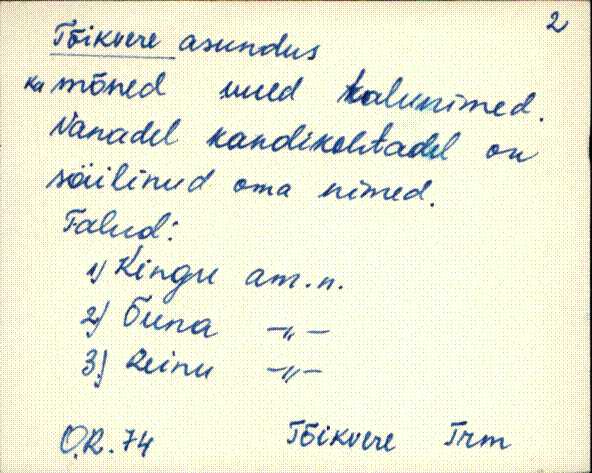 2
Tõikvere asundus
ka mõned uued talunimed.
Vanadel kandikohtadel on
säilinud oma nimed.
Talud:
1) Kingu am.n.
2) Õuna -„-
3) Reinu -„-
O.R. 74 Tõikvere Trm